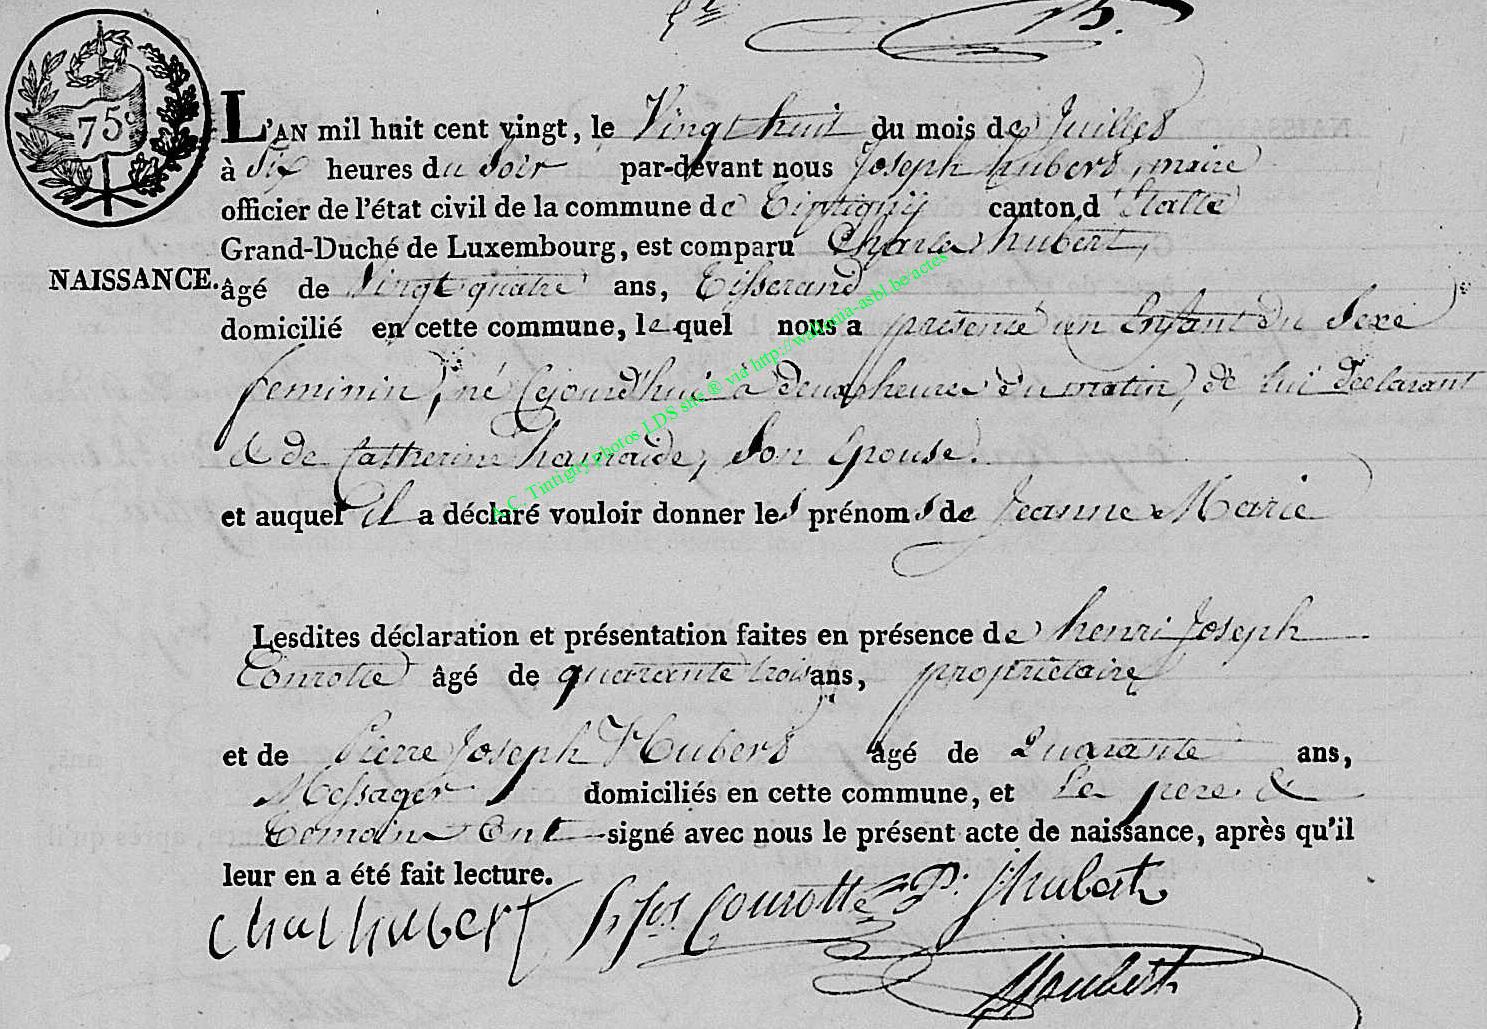 75c
L'AN mil huit cent vingt, le Vingt huit du mois de Juillet
à Six heures du Soir par-devant nous Joseph hubert, maire
officier de l'état civil de la commune de Tintigny canton d'Etalle
Grand-Duché de Luxembourg, est comparu Charle hubert,
NAISSANCE. âgé de Vingt quatre ans, Tisserand
domicilié en cette commune, lequel nous a présenté un Enfant du Sexe
feminin, né Cejourd'hui à deux heures du matin, de lui déclarant
& de Catherine hamaide, Son Epouse.
et auquel il a déclaré vouloir donner les prénoms de Jeanne Marie
Lesdites déclaration et présentation faites en présence de henri Joseph
Courotte âgé de quarante trois ans, propriétaire
et de Pierre Joseph Hubert âgé de Quarante ans,
Messager domiciliés en cette commune, et Le pere &
Temoins Ont signé avec nous le présent acte de naissance, après qu'il
leur en a été fait lecture.
Charl hubert h. Jos. Courotte P. J hubert
Houbert
A.C. Tintigny photos LDS site ® via http://wallonia-asbl.be/actes